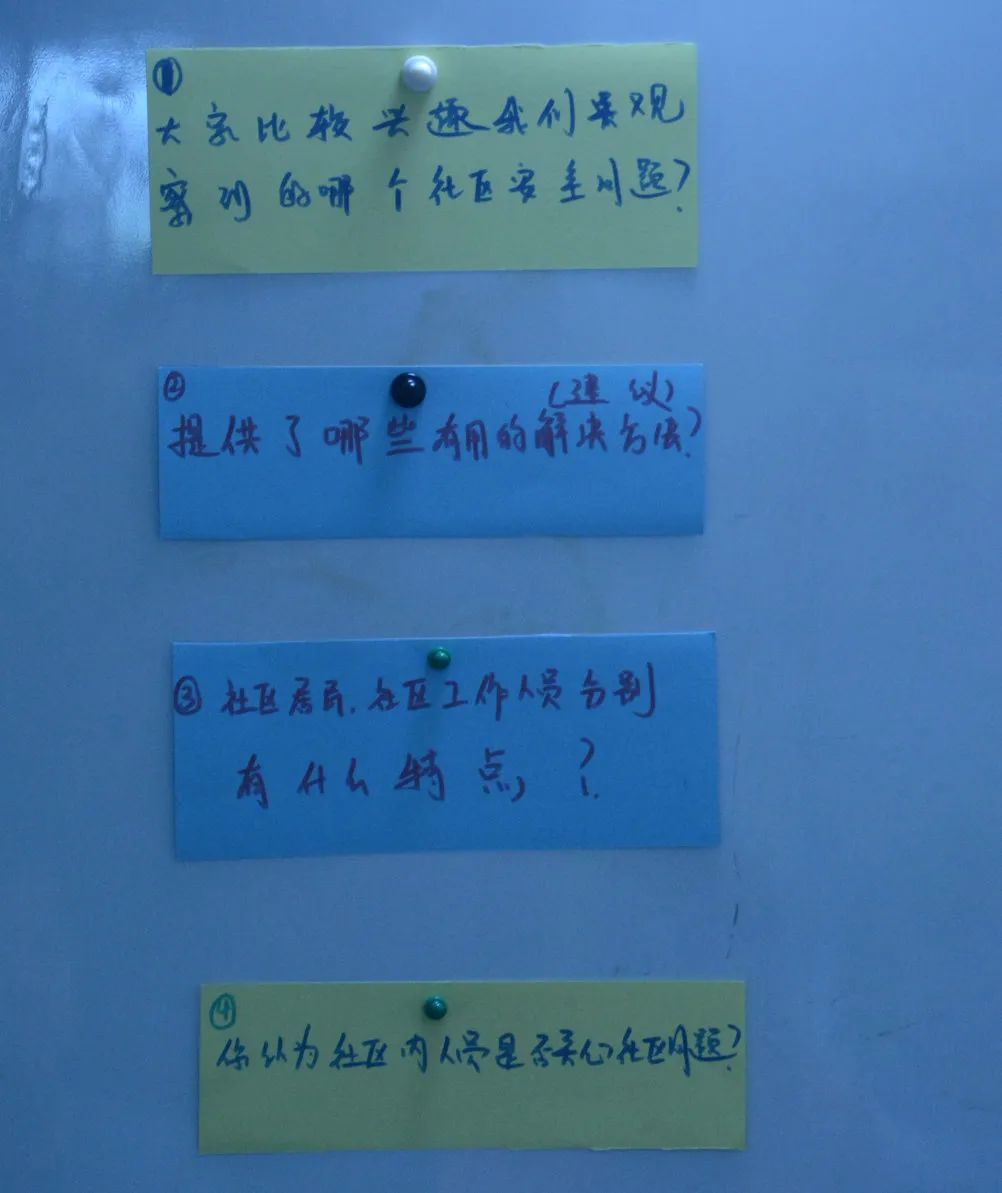 ①
大家比较兴趣我们实观
察到的哪个社区安全问题?
②
(建议)
提供了哪些有用的解决方法?
③社区居民、社区工作人员分别
有什么特点?
④
你认为社区内人员是否关心社区问题?